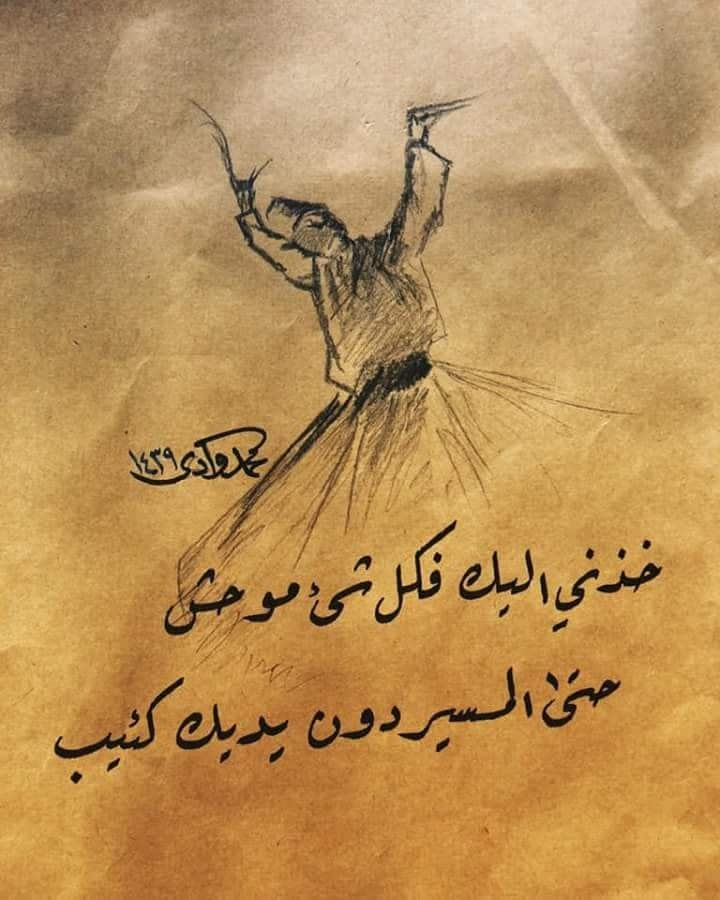 محمد وادي ١٤٣٩
خذني اليك فكل شئ موحش
حتى المسير دون يديك كئيب